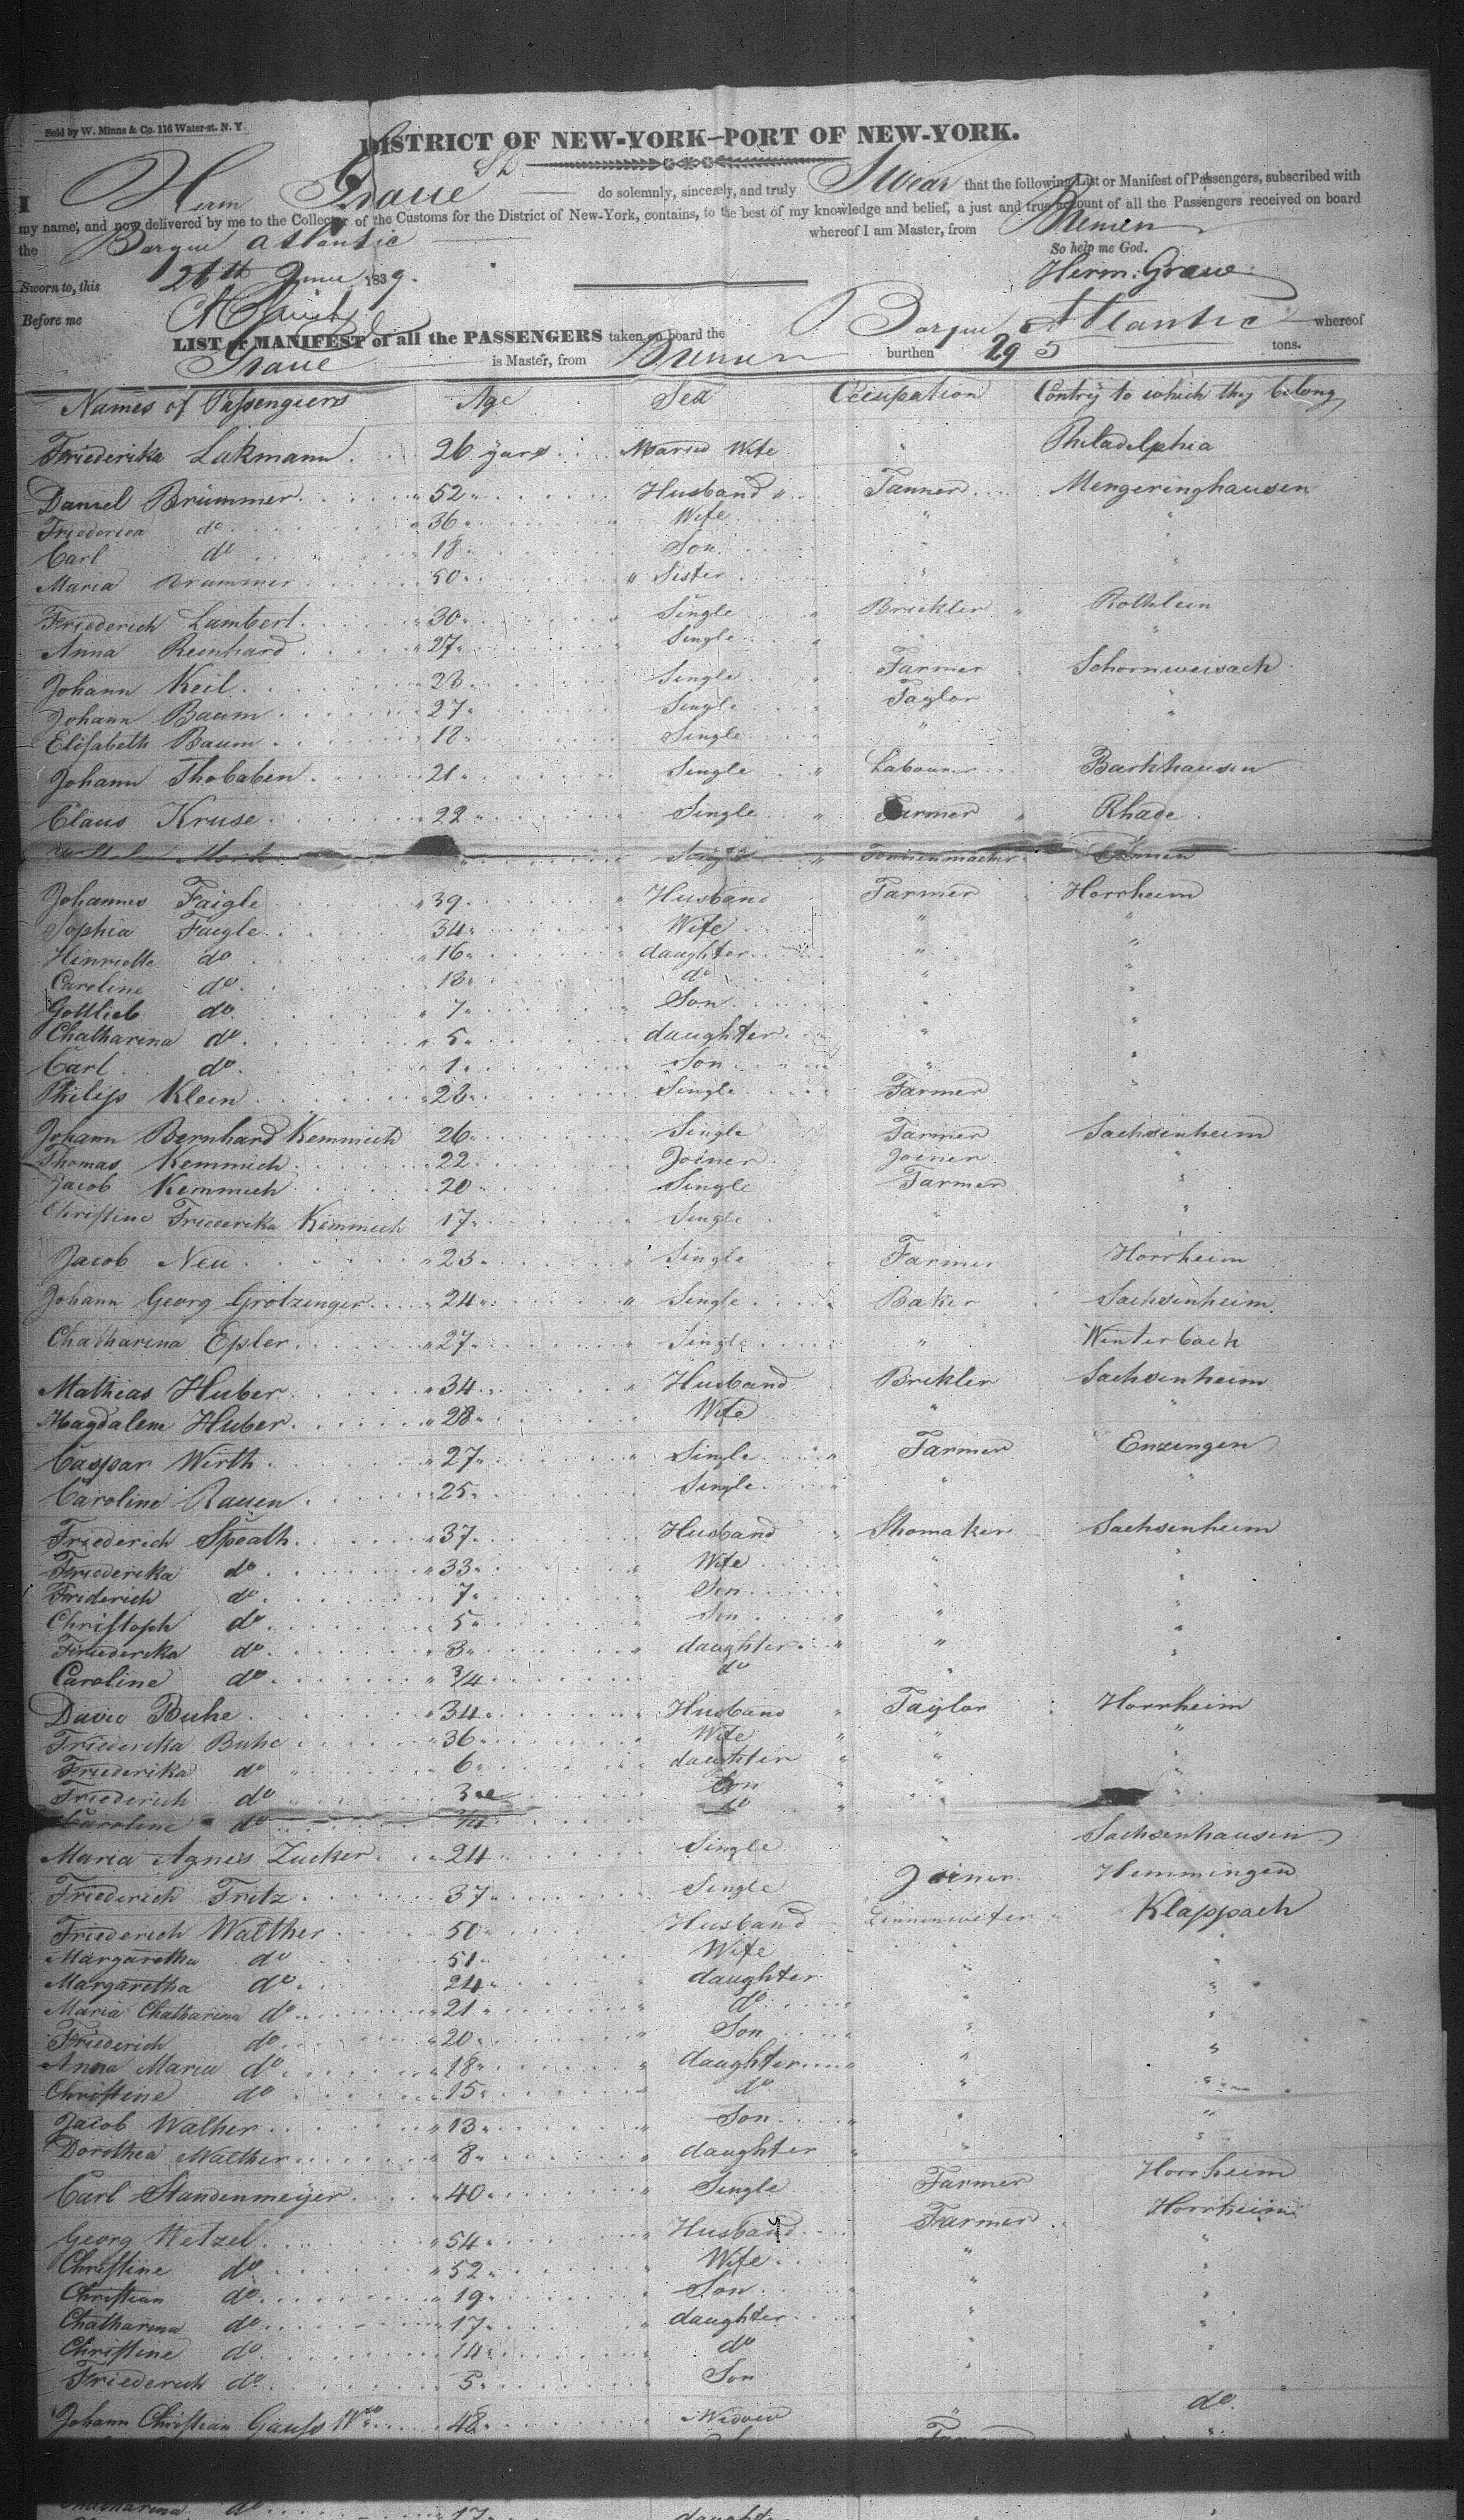 Sold by W. Minns & Co. 116 Water-st. N. Y.
DISTRICT OF NEW-YORK—PORT OF NEW-YORK.
I Herm Graue do solemnly, sincerely, and truly Swear that the following List or Manifest of Passengers, subscribed with
my name, and now delivered by me to the Collector of the Customs for the District of New-York, contains, to the best of my knowledge and belief, a just and true account of all the Passengers received on board
the Barque Atlantic whereof I am Master, from Bremen
So help me God.
Sworn to, this 26th June 1839. Herm: Graue
Before me
LIST or MANIFEST of all the PASSENGERS taken on board the Barque Atlantic whereof
Graue is Master, from Bremen burthen 295 tons.
Names of Passengiers Age Sex Occupation Contry to which they belong
Friederika Lakmann 26 years Maried Wife " Philadelphia
Daniel Brümmer " 52 " Husband " Tanner Mengeringhausen
Friederica do " 36 " Wife " "
Carl do " 18 " Son " "
Maria Brummer " 50 " " Sister "
Friederich Lambert " 30 " Single " Brickler " Rothlein
Anna Reinhard " 27 " Single " " "
Johann Keil " 28 " Single " Farmer Schornweisach
Johann Baum " 27 " Single " Taylor "
Elisabeth Baum " 18 " Single " "
Johann Thobaben " 21 " Single " Labourer Barkhausen
Claus Kruse " 22 " Single " Farmer " Rhade
Single " Bremen
Johannes Faigle " 39 " Husband Farmer Horrheim
Sophia Faigle 34 " Wife " "
Henriette do " 16 " daughter " "
Caroline do " 18 " do " "
Gottlieb do " 7 " Son " "
Chatharina do " 5 " daughter " "
Carl do " 1 " Son " "
Philip Klein " 28 " Single Farmer "
Johann Bernhard Kemmich 26 " Single Farmer Sachsenheim
Thomas Kemmich " 22 " Joiner Joiner "
Jacob Kemmich " 20 " Single Farmer "
Christine Friederika Kemmich 17 " Single " "
Jacob Neu " 23 " Single Farmer Horrheim
Johann Georg Grotzinger " 24 " " Single Baker Sachsenheim
Chatharina Epler " 27 " Single " Winterbach
Mathias Huber " 34 " " Husband Brickler Sachsenheim
Magdalena Huber " 28 " Wife " "
Caspar Wirth " 27 " " Single " Farmer Enzingen
Caroline Rauen " 25 " Single " " "
Friederich Speath " 37 " Husband " Shomaker Sachsenheim
Friederika do " 33 " " Wife " "
Friderich do " 7 " Son " "
Christoph do " 5 " Son " " "
Friederika do " 3 " " daughter " " "
Caroline do " 3/4 " do " "
David Buhe " 34 " Husband " Taylor Horrheim
Friederika Buhe " 36 " Wife " "
Friederika do " 6 " daughter " " "
Friederich do 3 Son " " "
Caroline do 3/4 do "
Maria Agnes Zucker " 24 " Single " Sachsenhausen
Friederich Fritz " 37 " Single Joiner Hemmingen
Friederich Walther " 50 " Husband Linnenweter Klappach
Margaretha do " 51 " Wife " "
Margaretha do " 24 " daughter " "
Maria Chatharina do " 21 " do " "
Friederich do " 20 " Son " "
Anna Maria do " 18 " daughter " " "
Christine do " 15 " do " "
Jacob Walher " 13 " Son " " "
Dorothea Walther " 8 " daughter " " "
Carl Standenmeyer " 40 " Single Farmer Horrheim
Georg Wetzel " 54 " Husband Farmer Horrheim
Christine do " 52 " Wife " "
Christian do " 19 " Son " "
Chatharina do " 17 " daughter " "
Christine do " 14 " do " "
Friederich do " 5 " Son " "
Johann Christian Gauss Wwe " 48 " Widow " do
Chatharina do 17 daughter